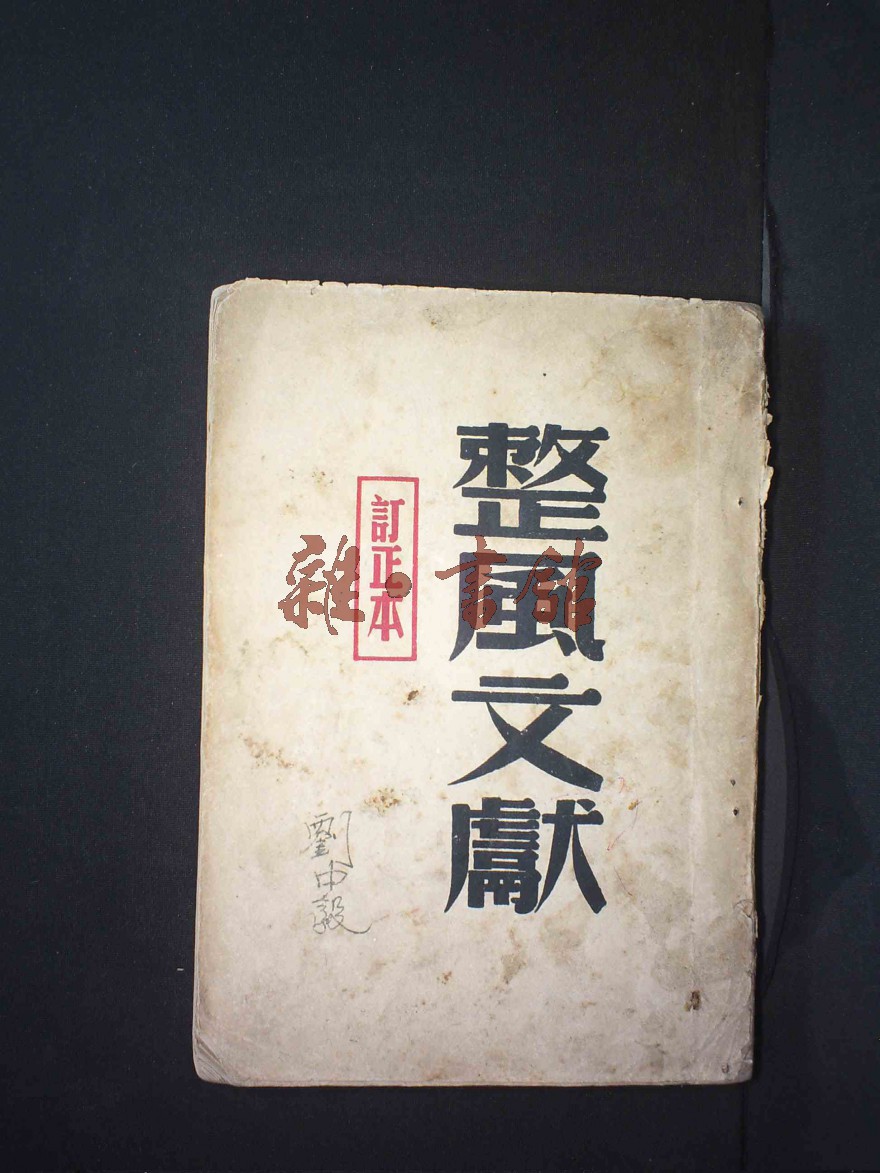 整風文獻
訂正本
雜·書館
劉中毅